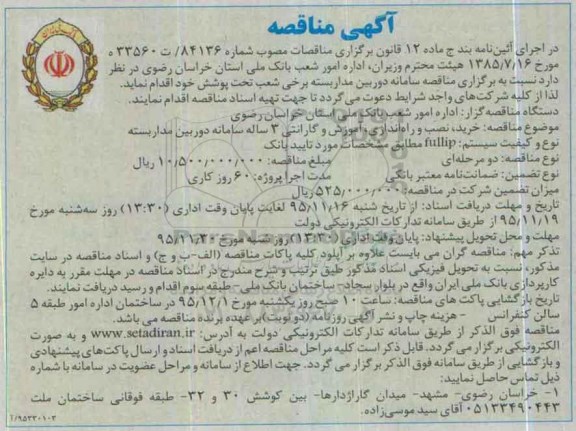 آگهی مناقصه
در اجرای آئین‌نامه بند ج ماده ۱۲ قانون برگزاری مناقصات مصوب شماره ۸۴۱۳۶/ ت ۳۳۵۶۰ ه
مورخ ۱۳۸۵/۷/۱۶ هیئت محترم وزیران، اداره امور شعب بانک ملی استان خراسان رضوی در نظر
دارد نسبت به برگزاری مناقصه سامانه دوربین مداربسته برخی شعب تحت پوشش خود اقدام نماید.
لذا از کلیه شرکت‌های واجد شرایط دعوت می‌گردد تا جهت تهیه اسناد مناقصه اقدام نمایند.
دستگاه مناقصه‌گزار: اداره امور شعب بانک ملی استان خراسان رضوی
موضوع مناقصه: خرید، نصب و راه‌اندازی، آموزش و گارانتی ۳ ساله سامانه دوربین مداربسته
نوع و کیفیت سیستم: fullip مطابق مشخصات مورد تایید بانک
نوع مناقصه: دو مرحله‌ای مبلغ مناقصه: ۱۰/۵۰۰/۰۰۰/۰۰۰ ریال
نوع تضمین: ضمانت‌نامه معتبر بانکی مدت اجرا پروژه: ۶۰ روز کاری
میزان تضمین شرکت در مناقصه: ۵۲۵/۰۰۰/۰۰۰ ریال
تاریخ و مهلت دریافت اسناد: از تاریخ شنبه ۹۵/۱۱/۱۶ لغایت پایان وقت اداری (۱۳:۳۰) روز سه‌شنبه مورخ
۹۵/۱۱/۱۹ از طریق سامانه تدارکات الکترونیکی دولت
مهلت و محل تحویل پیشنهاد: پایان وقت اداری (۱۳:۳۰) روز شنبه مورخ ۹۵/۱۱/۳۰
تذکر مهم: مناقصه گران می بایست علاوه بر آپلود کلیه پاکات مناقصه (الف-ب و ج) و اسناد مناقصه در سایت
مذکور، نسبت به تحویل فیزیکی اسناد مذکور طبق ترتیب و شرح مندرج در اسناد مناقصه در مهلت مقرر به دایره
کارپردازی بانک ملی ایران واقع در بلوار سجاد- ساختمان بانک ملی- طبقه سوم اقدام و رسید دریافت نمایند.
تاریخ بازگشایی پاکت های مناقصه: ساعت ۱۰ صبح روز یکشنبه مورخ ۹۵/۱۲/۱ در ساختمان اداره امور طبقه ۵
سالن کنفرانس - هزینه چاپ و نشر آگهی روزنامه (دو نوبت) بر عهده برنده مناقصه می باشد.
مناقصه فوق الذکر از طریق سامانه تدارکات الکترونیکی دولت به آدرس: www.setadiran.ir و به صورت
الکترونیکی برگزار می گردد. قابل ذکر است کلیه مراحل مناقصه اعم از دریافت اسناد و ارسال پاکت‌های پیشنهادی
و بازگشایی از طریق سامانه فوق الذکر برگزار می گردد. جهت اطلاع از سامانه و مراحل عضویت در سامانه با شماره
ذیل تماس حاصل نمایید:
۱- خراسان رضوی- مشهد- میدان گاراژدارها- بین کوشش ۳۰ و ۳۲- طبقه فوقانی ساختمان ملت
۰۵۱۳۳۴۹۰۴۴۳ آقای سید موسی‌زاده.
۹۵۳۳۰۱۰۳/آ